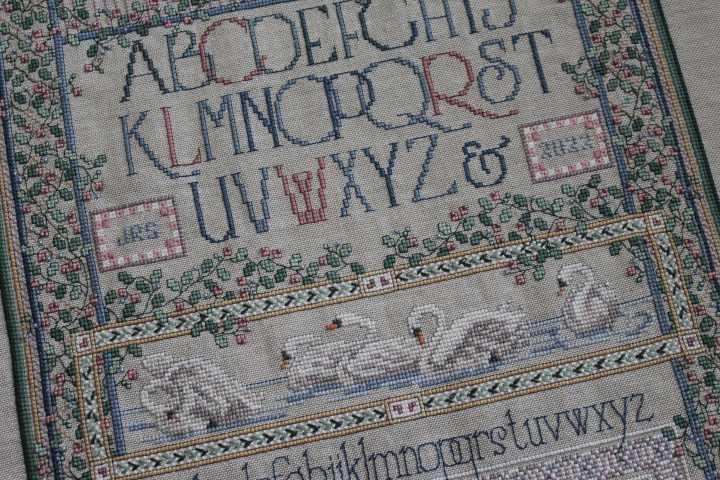 ABCDEFGHIJ
KLMNOPQRST
UVWXYZ &
2023
JRS
abcdefghijklmnopqrstuvwxyz